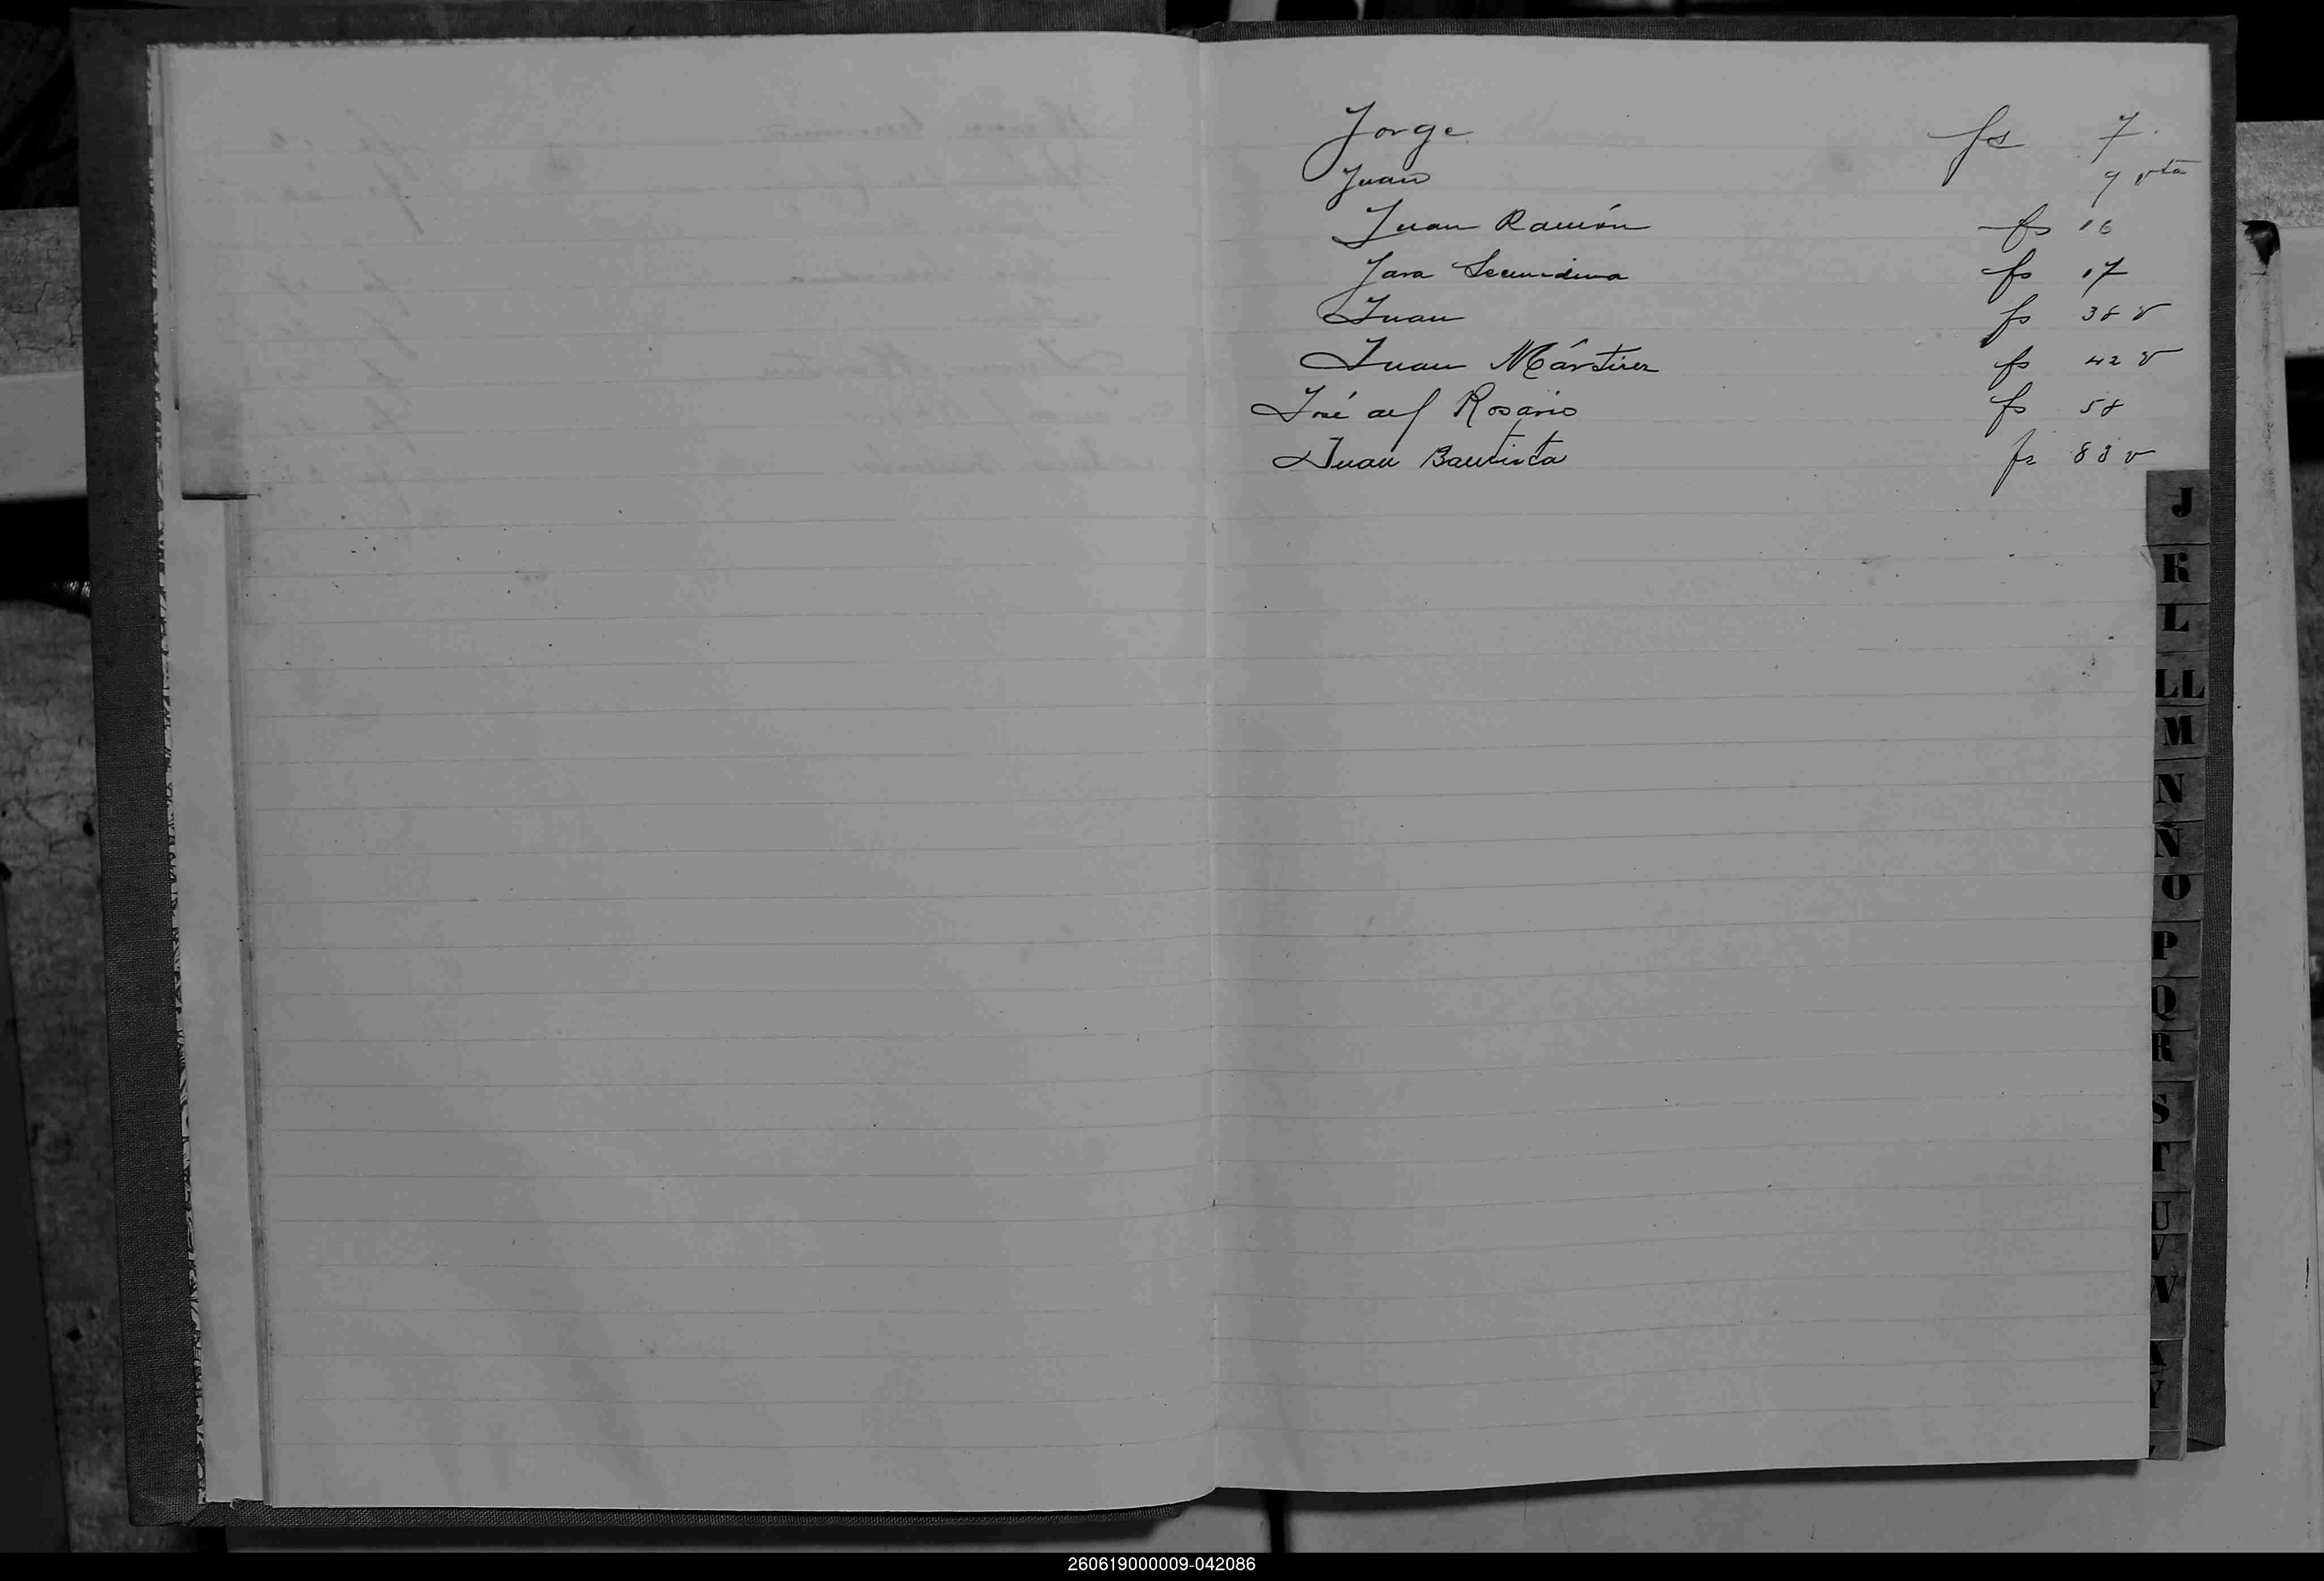 Jorge fs 7.
Juan 9 vta
Juan Ramón fs 16
Jara Secundina fs 17
Juan fs 38 v
Juan Mártirez fs 42 v
José del Rosario fs 58
Juan Bautista fs 83 v
J
K
L
LL
M
N
Ñ
O
P
Q
R
S
T
U
V
W
X
Y
260619000009-042086